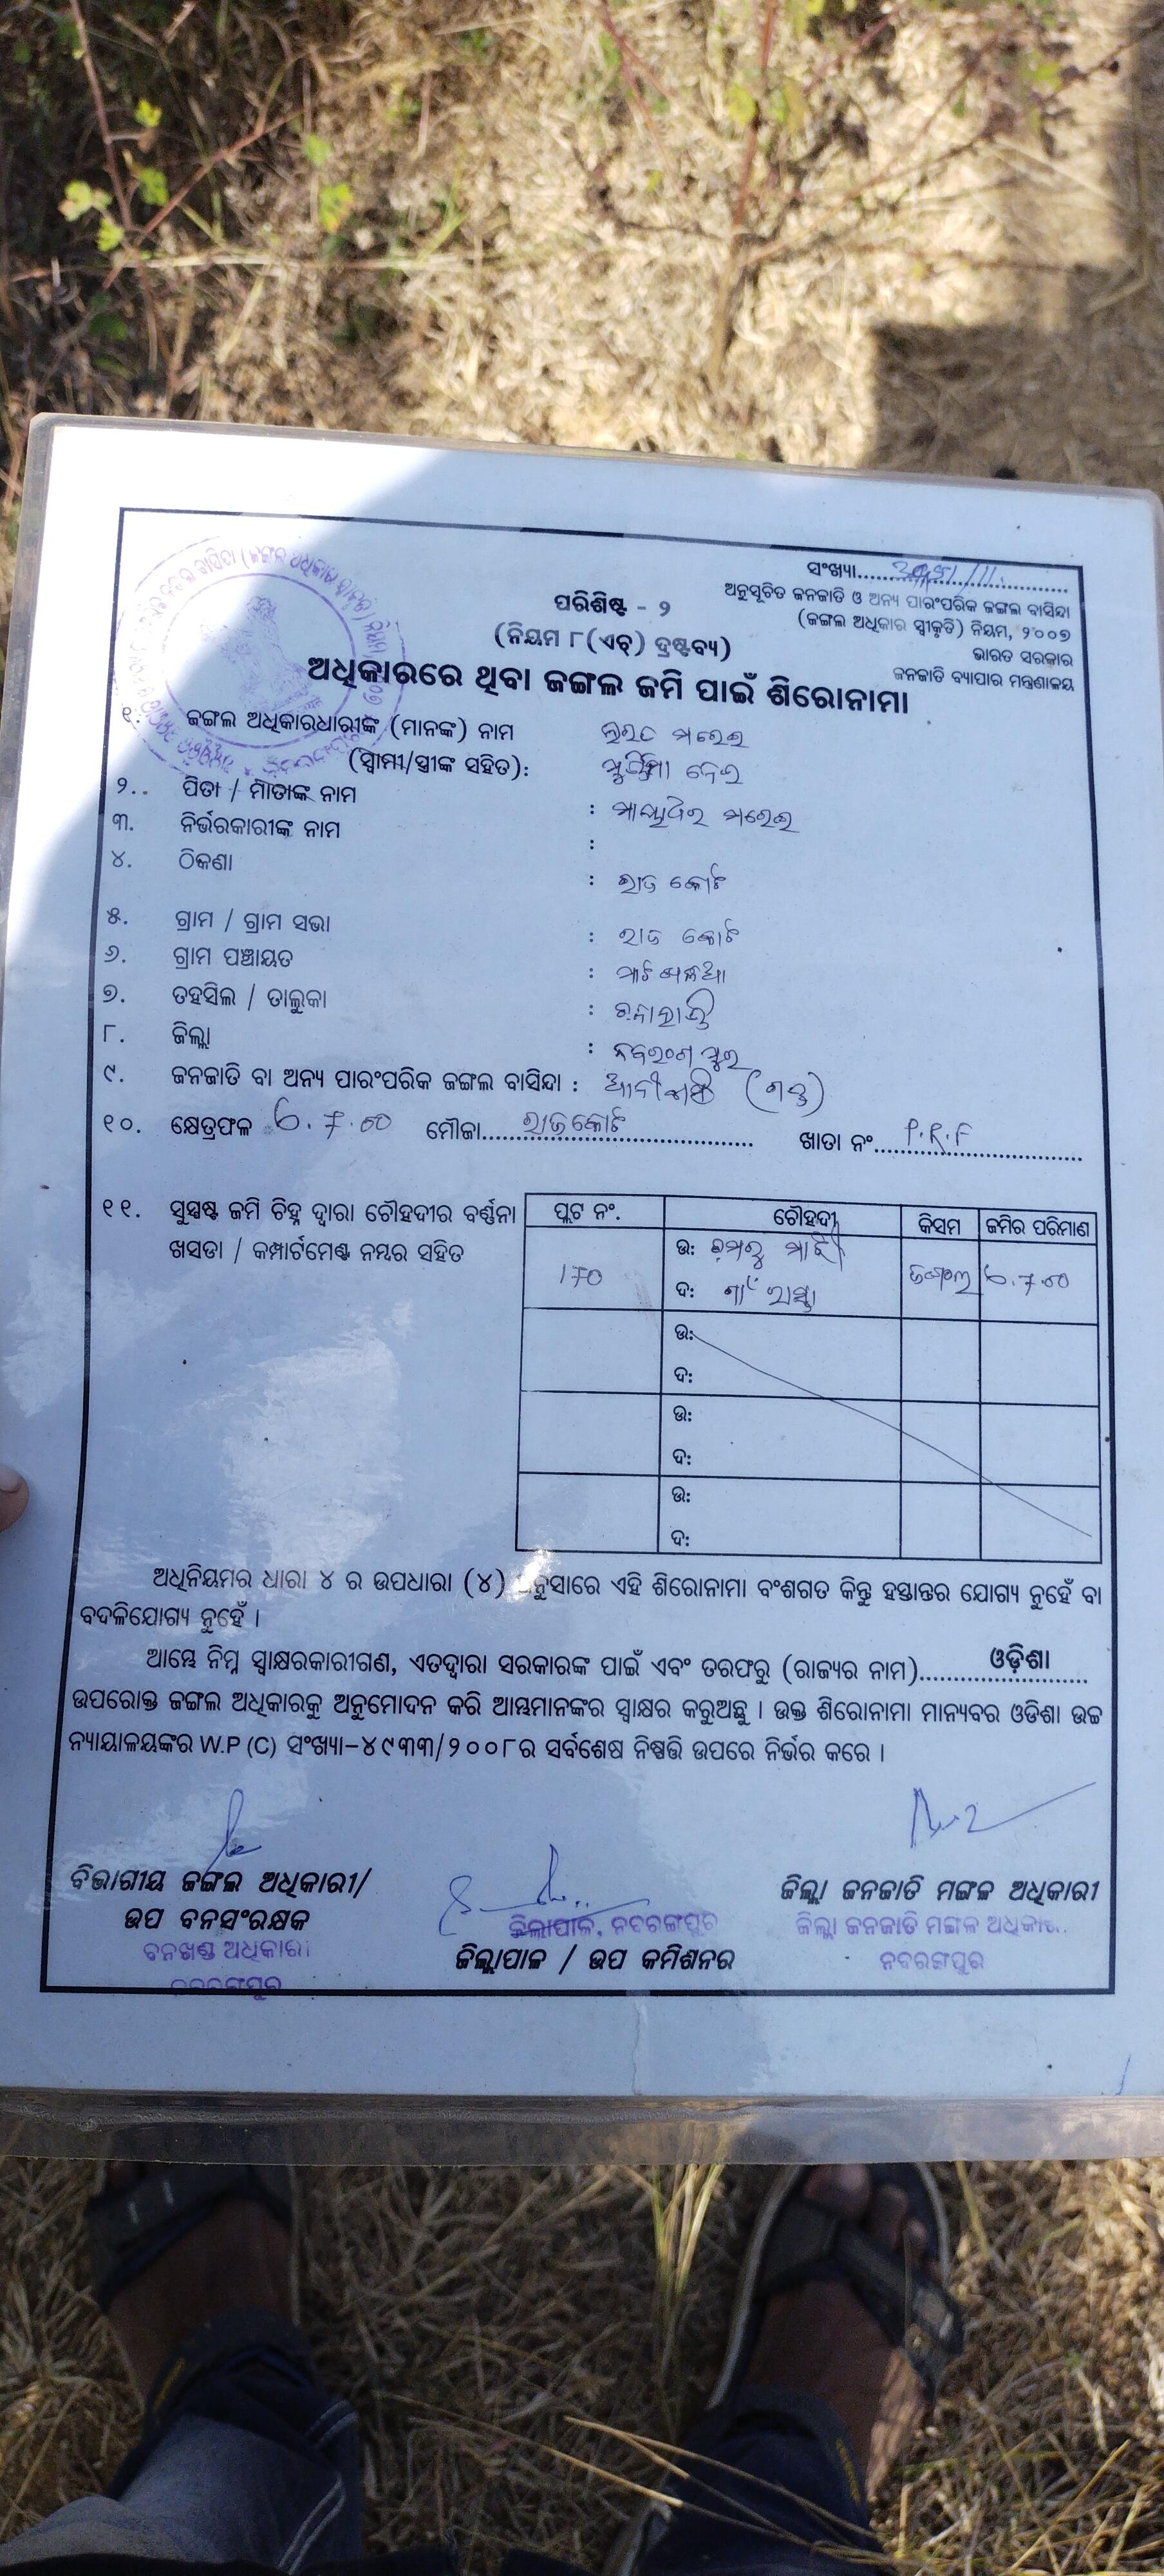 ସଂଖ୍ୟା
ଅନୁସୂଚିତ ଜନଜାତି ଓ ଅନ୍ୟ ପାରଂପରିକ ଜଙ୍ଗଲ ବାସିନ୍ଦା
(ଜଙ୍ଗଲ ଅଧିକାର ସ୍ୱୀକୃତି) ନିୟମ, ୨୦୦୭
ଭାରତ ସରକାର
ଜନଜାତି ବ୍ୟାପାର ମନ୍ତ୍ରଣାଳୟ
ପରିଶିଷ୍ଟ - ୨
(ନିୟମ ୮(ଏଚ୍) ଦ୍ରଷ୍ଟବ୍ୟ)
ଅଧିକାରରେ ଥିବା ଜଙ୍ଗଲ ଜମି ପାଇଁ ଶିରୋନାମା
୧. ଜଙ୍ଗଲ ଅଧିକାରଧାରୀଙ୍କ (ମାନଙ୍କ) ନାମ
(ସ୍ୱାମୀ/ସ୍ତ୍ରୀଙ୍କ ସହିତ):
୨.. ପିତା / ମାତାଙ୍କ ନାମ :
୩. ନିର୍ଭରକାରୀଙ୍କ ନାମ :
୪. ଠିକଣା : ରାଜ କୋଟ
୫. ଗ୍ରାମ / ଗ୍ରାମ ସଭା : ରାଜ କୋଟ
୬. ଗ୍ରାମ ପଞ୍ଚାୟତ :
୭. ତହସିଲ / ତାଲୁକା :
୮. ଜିଲ୍ଲା : ନବରଂଗପୁର
୯. ଜନଜାତି ବା ଅନ୍ୟ ପାରଂପରିକ ଜଙ୍ଗଲ ବାସିନ୍ଦା : (ଗଣ୍ଡ)
୧୦. କ୍ଷେତ୍ରଫଳ ମୌଜା ରାଜକୋଟ ଖାତା ନଂ P.R.F
୧୧. ସୁସ୍ପଷ୍ଟ ଜମି ଚିହ୍ନ ଦ୍ୱାରା ଚୌହଦୀର ବର୍ଣ୍ଣନା
ଖସଡା / କମ୍ପାର୍ଟମେଣ୍ଟ ନମ୍ବର ସହିତ
ପ୍ଲଟ ନଂ. ଚୌହଦୀ କିସମ ଜମିର ପରିମାଣ
ଉ: ମାଝି
170 ଜଙ୍ଗଲ
ଦ: ଗାଁ ରାସ୍ତା
ଉ:
ଦ:
ଉ:
ଦ:
ଉ:
ଦ:
ଅଧିନିୟମର ଧାରା ୪ ର ଉପଧାରା (୪) ଅନୁସାରେ ଏହି ଶିରୋନାମା ବଂଶଗତ କିନ୍ତୁ ହସ୍ତାନ୍ତର ଯୋଗ୍ୟ ନୁହେଁ ବା
ବଦଳିଯୋଗ୍ୟ ନୁହେଁ ।
ଆମ୍ଭେ ନିମ୍ନ ସ୍ୱାକ୍ଷରକାରୀଗଣ, ଏତଦ୍ୱାରା ସରକାରଙ୍କ ପାଇଁ ଏବଂ ତରଫରୁ (ରାଜ୍ୟର ନାମ) ଓଡ଼ିଶା
ଉପରୋକ୍ତ ଜଙ୍ଗଲ ଅଧିକାରକୁ ଅନୁମୋଦନ କରି ଆମ୍ଭମାନଙ୍କର ସ୍ୱାକ୍ଷର କରୁଅଛୁ । ଉକ୍ତ ଶିରୋନାମା ମାନ୍ୟବର ଓଡିଶା ଉଚ୍ଚ
ନ୍ୟାୟାଳୟଙ୍କର W.P (C) ସଂଖ୍ୟା-୪୯୩୩/୨୦୦୮ର ସର୍ବଶେଷ ନିଷ୍ପତ୍ତି ଉପରେ ନିର୍ଭର କରେ ।
ବିଭାଗୀୟ ଜଙ୍ଗଲ ଅଧିକାରୀ/
ଉପ ବନସଂରକ୍ଷକ
ବନଖଣ୍ଡ ଅଧିକାରୀ
ନବରଙ୍ଗପୁର
ଜିଲ୍ଲାପାଳ, ନବରଙ୍ଗପୁର
ଜିଲ୍ଲାପାଳ / ଉପ କମିଶନର
ଜିଲ୍ଲା ଜନଜାତି ମଙ୍ଗଳ ଅଧିକାରୀ
ଜିଲ୍ଲା ଜନଜାତି ମଙ୍ଗଳ ଅଧିକାରୀ
ନବରଙ୍ଗପୁର